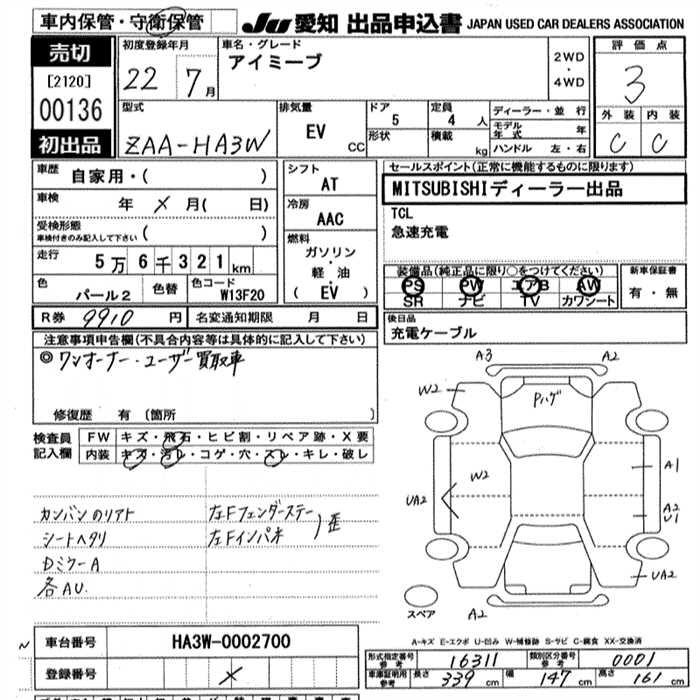 車内保管・守衛保管
JU 愛知 出品申込書 JAPAN USED CAR DEALERS ASSOCIATION
売切
[2120]
00136
初出品
初度登録年月
22 7月
車名・グレード
アイミーブ
2WD
・
4WD
評価点
3
外装 内装
C C
型式
ZAA-HA3W
排気量
EV
CC
ドア
5
形状
定員
4人
積載
kg
ディーラー・並行
モデル年式 年
ハンドル 左・右
車歴
自家用・( )
車検
年 X 月( 日)
受検形態
車検付きのみ記入して下さい ( )
走行
5万6千321km
色
パール2
色替
色コード
W13F20
シフト
AT
冷房
AAC
燃料
ガソリン
・
軽油
・
( EV )
セールスポイント(正常に機能するものに限ります)
MITSUBISHIディーラー出品
TCL
急速充電
装備品(純正品に限り○をつけてください)
PS PW エアB AW
SR ナビ TV カワシート
新車保証書
有・無
R券 9910 円 名変通知期限 月 日
後日品
充電ケーブル
注意事項申告欄(不具合内容等は具体的に記入して下さい)
◎ワンオーナー・ユーザー買取車
修復歴 有(箇所 )
検査員記入欄
FW キズ・飛石・ヒビ割・リペア跡・X要
内装 キズ・汚レ・コゲ・穴・スレ・キレ・破レ
カンバンのリアト
シートヘタリ
DミラーA
各AU.
左Fフェンダーステー
左Fインパネ
歪
A3 A2
W2 Pハゲ
W2 A1
UA2 A2
U1
UA2
スペア A2
A-キズ E-エクボ U-凹み W-補修跡 S-サビ C-腐食 XX-交換済
車台番号 HA3W-0002700
登録番号 X
形式指定番号 参考 16311 類別区分番号 参考 0001
車庫証明用 参考 長さ 339 cm 幅 147 cm 高さ 161 cm